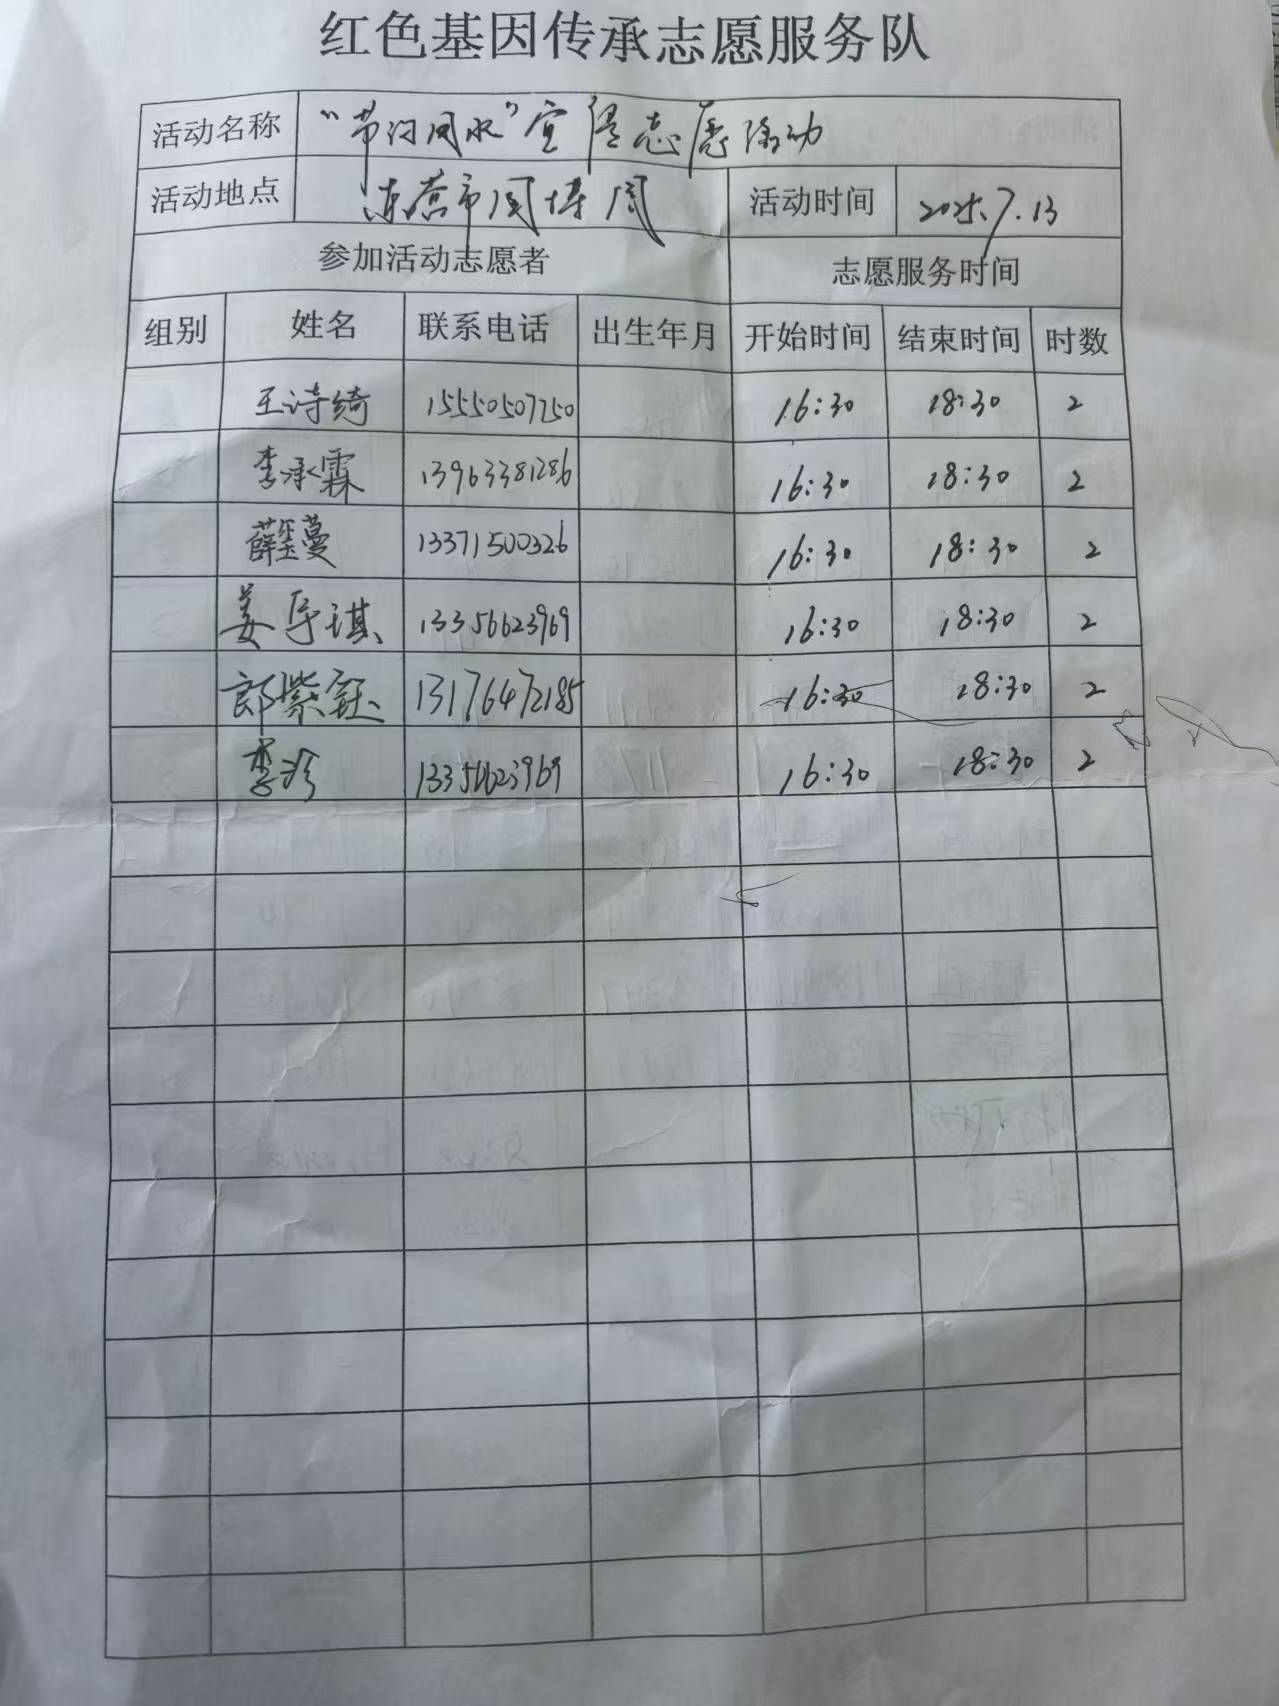 红色基因传承志愿服务队
活动名称 “节约用水”宣传志愿活动
活动地点 东营市园博园 活动时间 2025.7.13
参加活动志愿者 志愿服务时间
组别 姓名 联系电话 出生年月 开始时间 结束时间 时数
王诗绮 15550507250 16:30 18:30 2
李承霖 13963381286 16:30 18:30 2
薛蔓 13371500326 16:30 18:30 2
姜琪 13356623969 16:30 18:30 2
郎紫钰 13176472185 16:30 18:30 2
李珍 13356623969 16:30 18:30 2